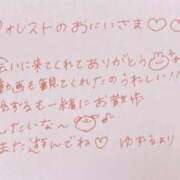 フォレストのおにいさま♡♡
会いに来てくれてありがとう
動画も観てくれたのうれしい!!
ゆずるも一緒にお散歩
したいな〜
また遊んでね♡ ゆずるより